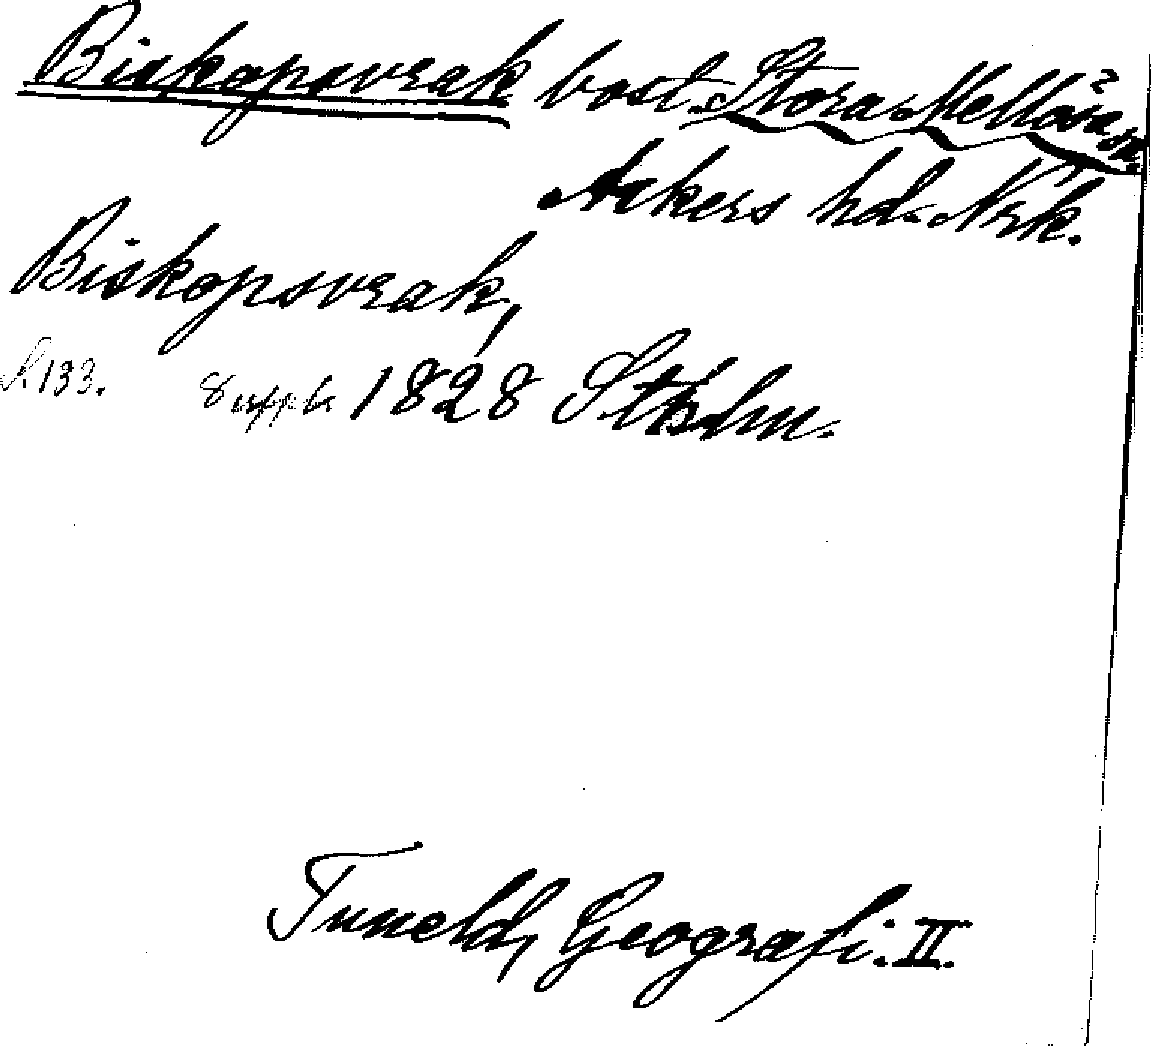 Biskopsvrak bost. Stora Mellösa sn.
Askers hd. Nrk.
Biskopsvrak,
S. 133. 8 uppl. 1828 Stkhlm.
Tuneld, Geografi. II.